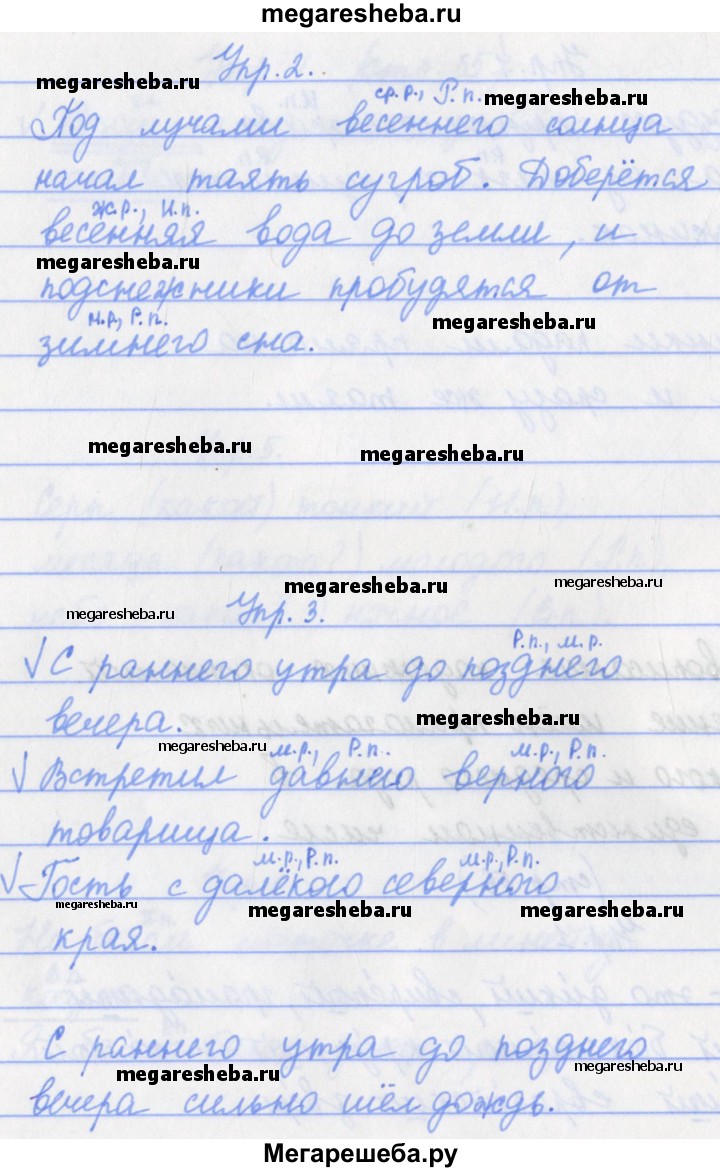 megaresheba.ru
Упр. 2.
megaresheba.ru
ср. р., Р. п.
megaresheba.ru
Под лучами весеннего солнца
начал таять сугроб. Доберётся
ж.р., И.п.
весенняя вода до земли, и
megaresheba.ru
подснежники пробудятся от
м.р, Р.п.
megaresheba.ru
зимнего сна.
megaresheba.ru
megaresheba.ru
megaresheba.ru
megaresheba.ru
megaresheba.ru
Упр. 3.
Р.п., м.р.
√ С раннего утра до позднего
вечера.
megaresheba.ru
megaresheba.ru
м.р., Р.п. м.р., Р.п.
√ Встретил давнего верного
товарища.
м.р., Р.п. м.р., Р.п.
√ Гость с далёкого северного
megaresheba.ru
megaresheba.ru
megaresheba.ru
края.
С раннего утра до позднего
megaresheba.ru
megaresheba.ru
вечера сильно шёл дождь.
Мегарешеба.ру